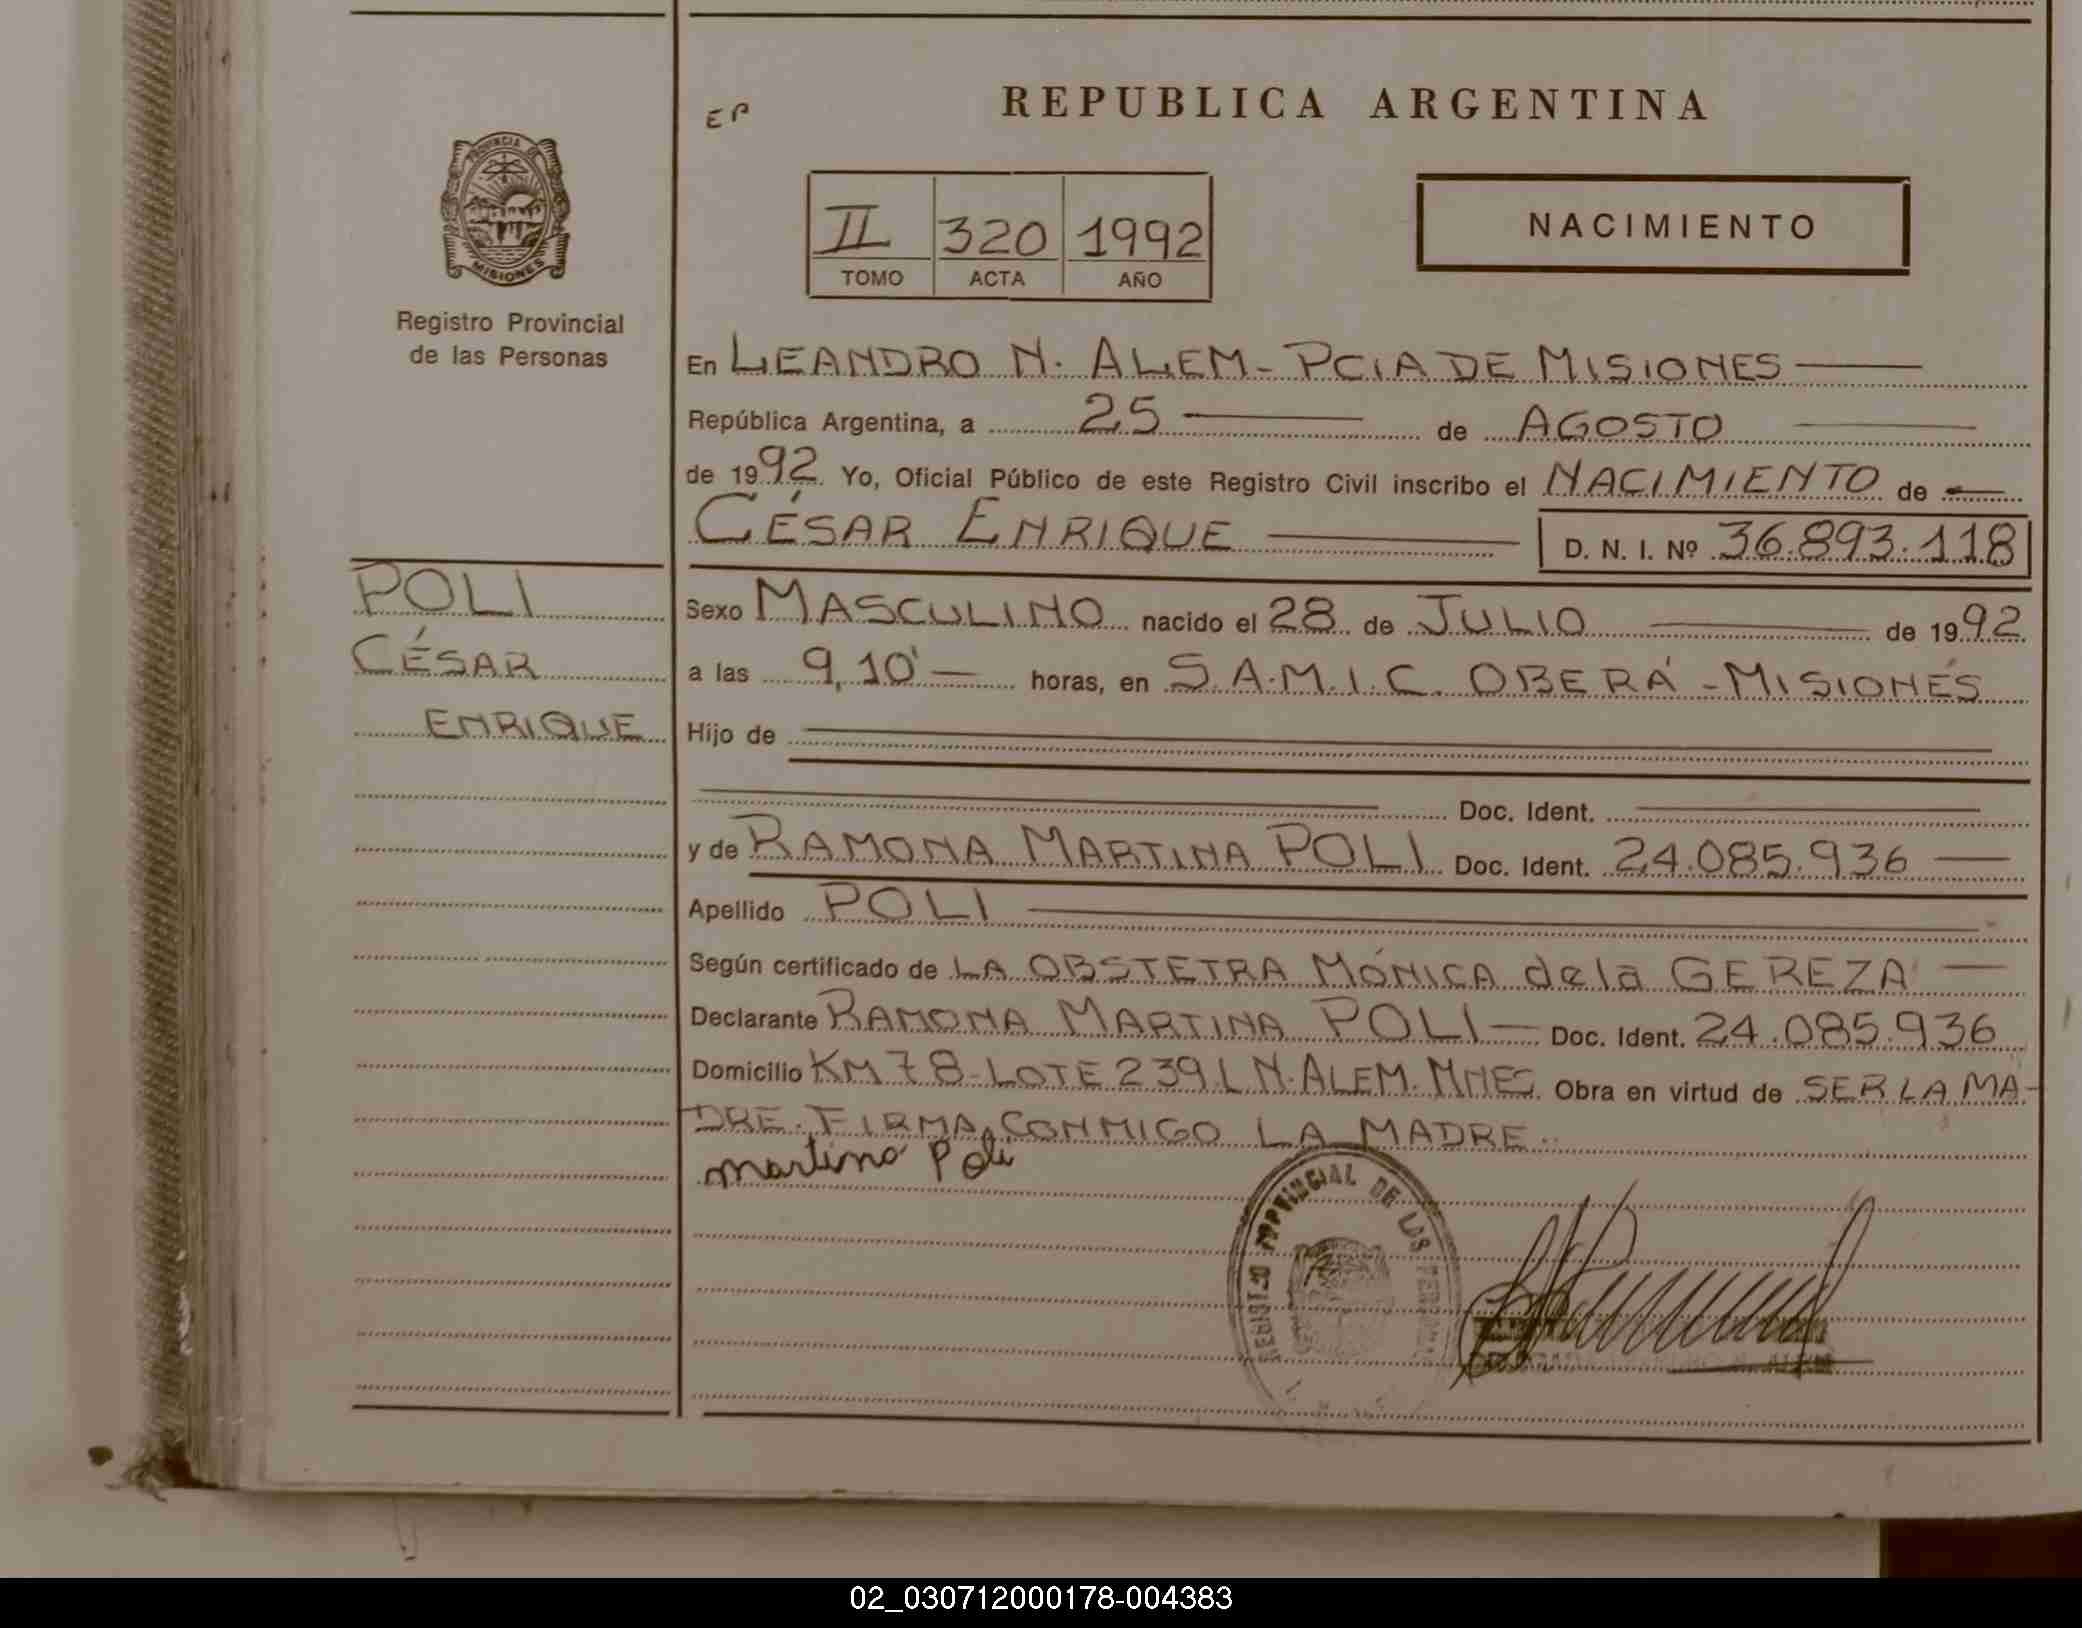 REPUBLICA ARGENTINA
EP
PROVINCIA DE
MISIONES
Registro Provincial
de las Personas
II 320 1992
TOMO ACTA AÑO
NACIMIENTO
En LEANDRO N. ALEM - PCIA DE MISIONES
República Argentina, a 25 de AGOSTO
de 1992 Yo, Oficial Público de este Registro Civil inscribo el NACIMIENTO de
CÉSAR ENRIQUE D. N. I. Nº 36.893.118
POLI
CÉSAR
ENRIQUE
Sexo MASCULINO nacido el 28 de JULIO de 1992
a las 9,10' horas, en S.A.M.I.C. OBERÁ - MISIONES
Hijo de
Doc. Ident.
y de RAMONA MARTINA POLI Doc. Ident. 24.085.936
Apellido POLI
Según certificado de LA OBSTETRA MÓNICA de la GEREZA
Declarante RAMONA MARTINA POLI Doc. Ident. 24.085.936
Domicilio KM 78 - LOTE 239 L N. ALEM. MNES. Obra en virtud de SER LA MA-
DRE. FIRMA CONMIGO LA MADRE.
martina Poli
REGISTRO PROVINCIAL DE LAS PERSONAS
02_030712000178-004383